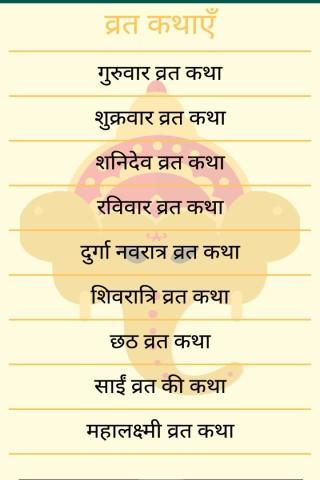 व्रत कथाएँ
गुरुवार व्रत कथा
शुक्रवार व्रत कथा
शनिदेव व्रत कथा
रविवार व्रत कथा
दुर्गा नवरात्र व्रत कथा
शिवरात्रि व्रत कथा
छठ व्रत कथा
साईं व्रत की कथा
महालक्ष्मी व्रत कथा